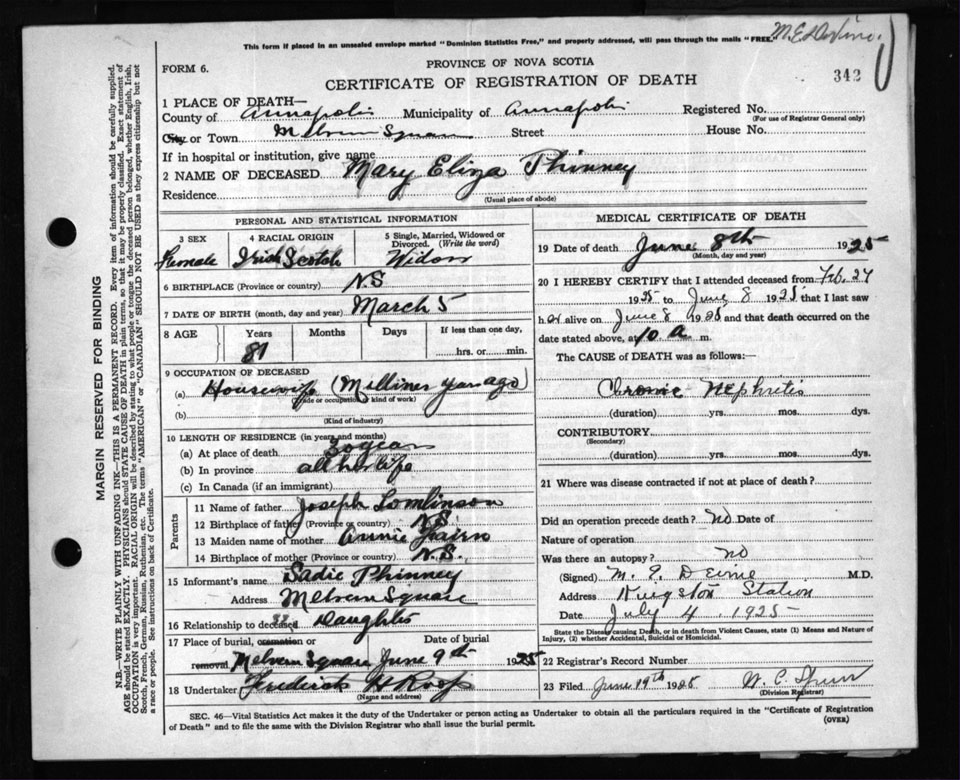 This form if placed in an unsealed envelope marked "Dominion Statistics Free," and properly addressed, will pass through the mails "FREE."
PROVINCE OF NOVA SCOTIA
FORM 6.
CERTIFICATE OF REGISTRATION OF DEATH
342
1 PLACE OF DEATH—
County of Annapolis Municipality of Annapolis Registered No.
(For use of Registrar General only)
City or Town Melvern Square Street House No.
If in hospital or institution, give name
2 NAME OF DECEASED Mary Eliza Phinney
Residence
(Usual place of abode)
PERSONAL AND STATISTICAL INFORMATION
3 SEX 4 RACIAL ORIGIN 5 Single, Married, Widowed or Divorced. (Write the word)
Female Irish Scotch Widow
6 BIRTHPLACE (Province or country) N.S
7 DATE OF BIRTH (month, day and year) March 5
8 AGE Years Months Days If less than one day,
81 hrs. or min.
9 OCCUPATION OF DECEASED
(a) Housewife (Milliner years ago)
(Trade or occupation or kind of work)
(b)
(Kind of industry)
10 LENGTH OF RESIDENCE (in years and months)
(a) At place of death 30 years
(b) In province all her life
(c) In Canada (if an immigrant)
Parents
11 Name of father Joseph Tomlinson
12 Birthplace of father (Province or country) N.S
13 Maiden name of mother Annie Fairn
14 Birthplace of mother (Province or country) N.S.
15 Informant's name Sadie Phinney
Address Melvern Square
16 Relationship to deceased Daughter
17 Place of burial, cremation or removal Date of burial
Melvern Square June 9th 1925
18 Undertaker Frederick
(Name and address)
MEDICAL CERTIFICATE OF DEATH
19 Date of death June 8th 1925
(Month, day and year)
20 I HEREBY CERTIFY that I attended deceased from Feb. 27
1925 to June 8 1925 that I last saw
her alive on June 8 1925 and that death occurred on the
date stated above, at 10 a m.
The CAUSE of DEATH was as follows:—
Chronic Nephritis
(duration) yrs. mos. dys.
CONTRIBUTORY
(Secondary)
(duration) yrs. mos. dys.
21 Where was disease contracted if not at place of death?
Did an operation precede death? no Date of
Nature of operation
Was there an autopsy? no
(Signed) M. E. Devine M.D.
Address Kingston Station
Date July 4 1925
State the Disease causing Death, or in death from Violent Causes, state (1) Means and Nature of Injury, (2) whether Accidental, Suicidal or Homicidal.
22 Registrar's Record Number
23 Filed June 19th 1925 W. C.
(Division Registrar)
SEC. 46—Vital Statistics Act makes it the duty of the Undertaker or person acting as Undertaker to obtain all the particulars required in the "Certificate of Registration
of Death" and to file the same with the Division Registrar who shall issue the burial permit. (OVER)
MARGIN RESERVED FOR BINDING
N.B.—WRITE PLAINLY WITH UNFADING INK—THIS IS A PERMANENT RECORD. Every item of information should be carefully supplied.
AGE should be stated EXACTLY. PHYSICIANS should STATE CAUSE OF DEATH in plain terms, so that it may be properly classified. Exact statement of
OCCUPATION is very important. RACIAL ORIGIN will be described by stating to what people or tongue the deceased person belonged, whether English, Irish,
Scotch, French, German, Russian, Ruthenian, etc. The terms "AMERICAN" or "CANADIAN" SHOULD NOT BE USED as they express citizenship but not
a race or people. See instructions on back of Certificate.